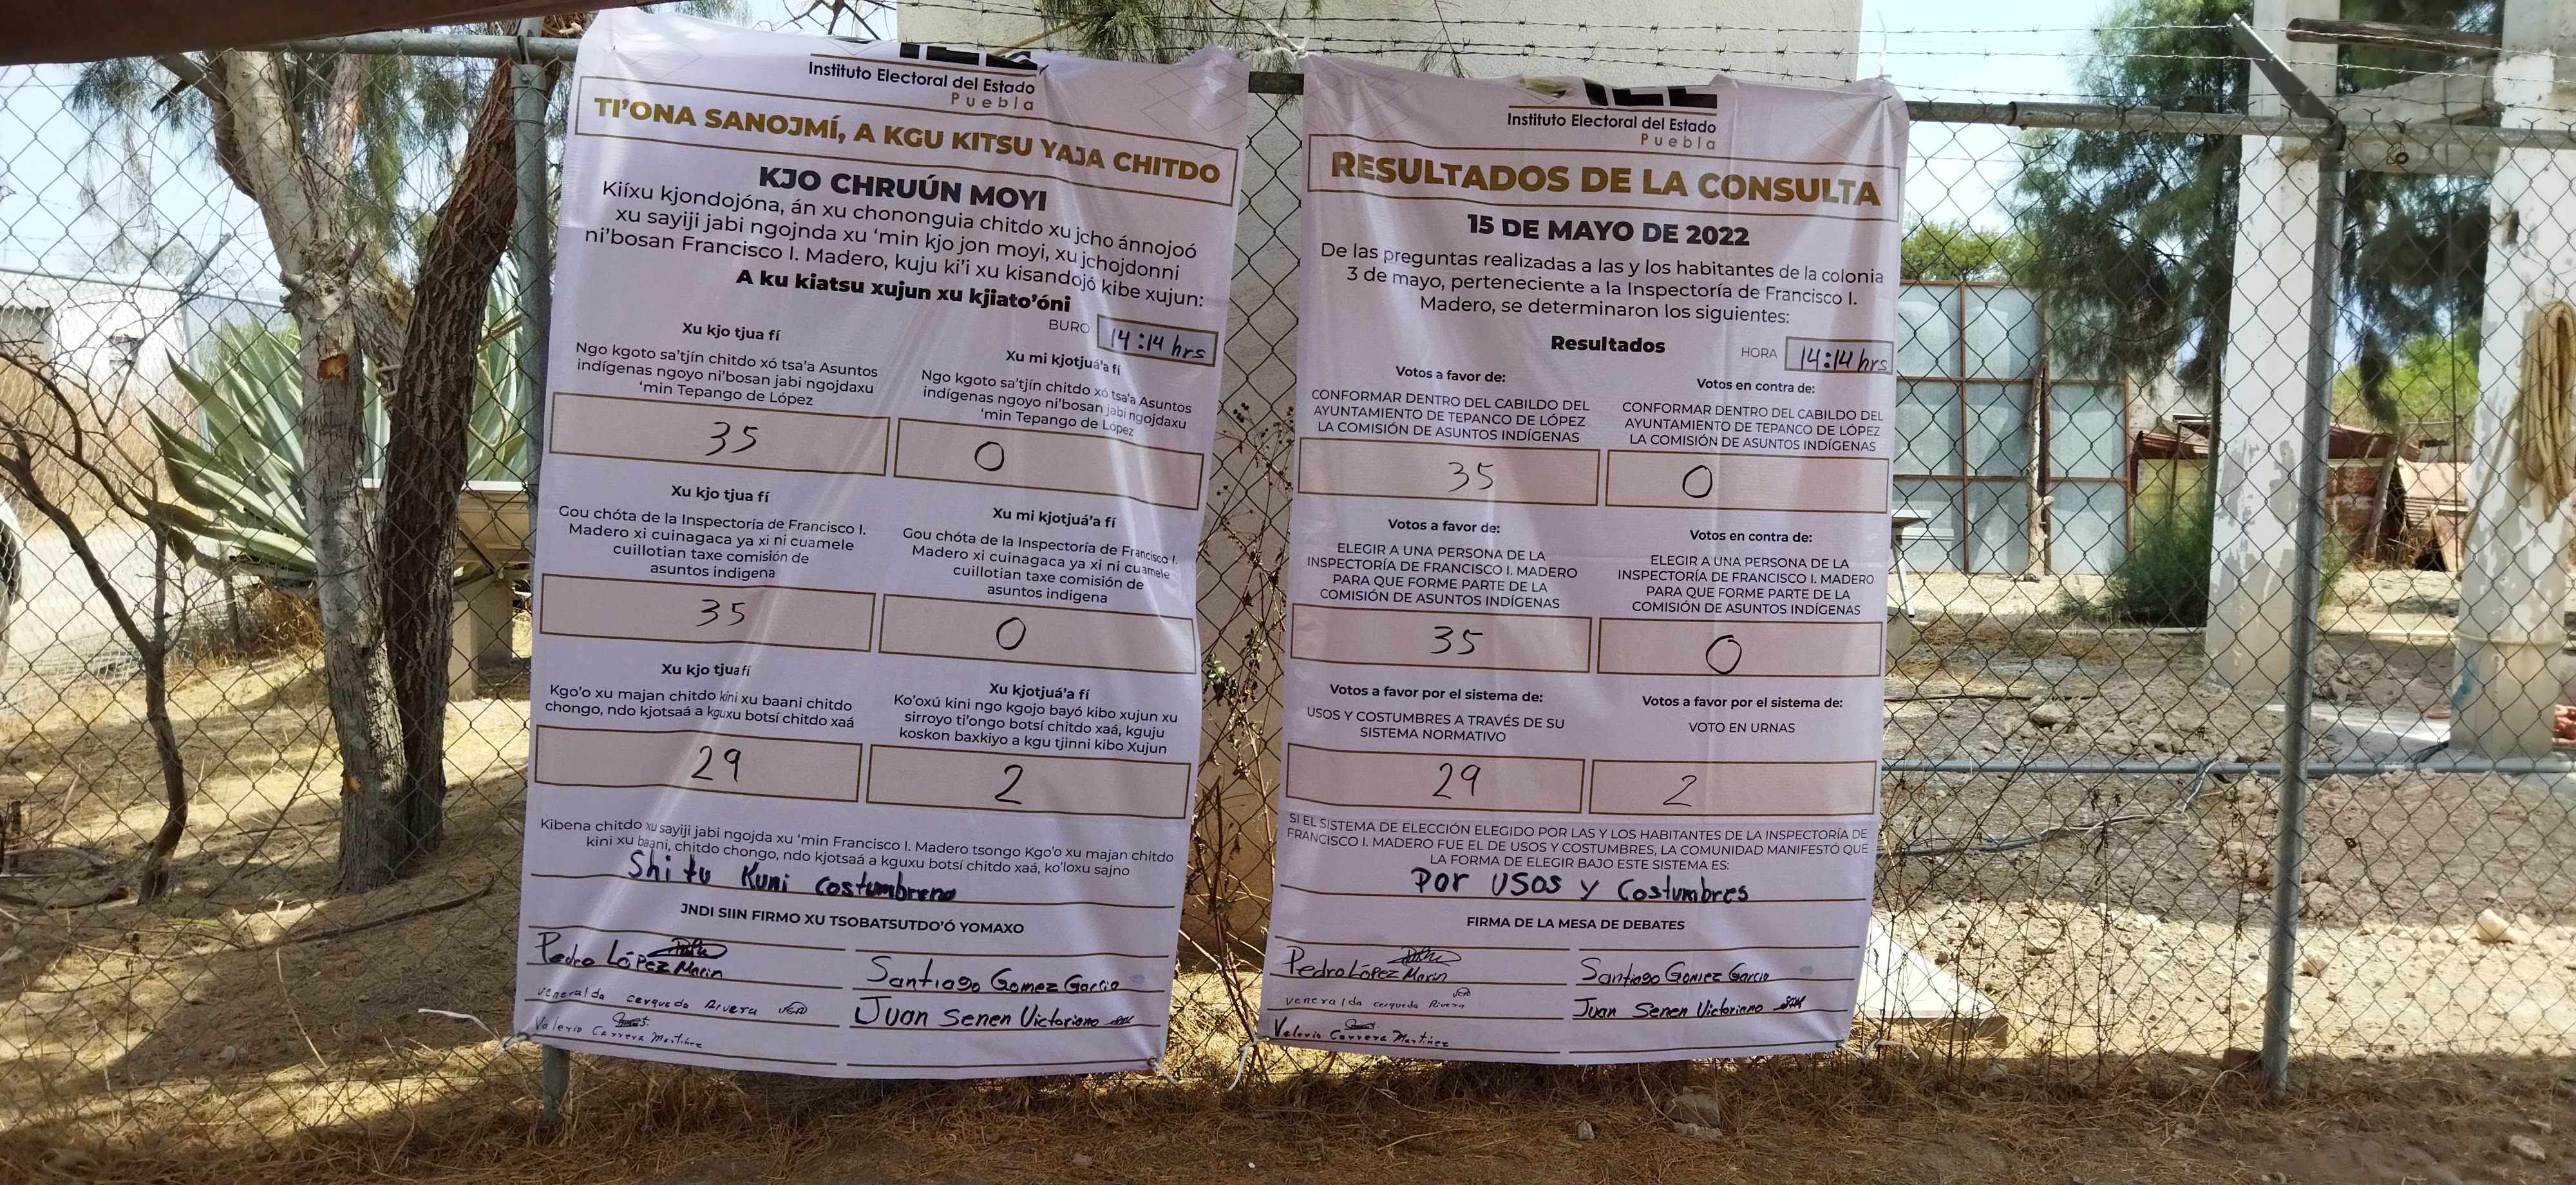 Instituto Electoral del Estado
Puebla
TI'ONA SANOJMÍ, A KGU KITSU YAJA CHITDO
KJO CHRUÚN MOYI
Kiíxu kjondojóna, án xu chononguia chitdo xu jcho ánnojoó
xu sayiji jabi ngojnda xu 'min kjo jon moyi, xu jchojdonni
ni'bosan Francisco I. Madero, kuju ki'i xu kisandojó kibe xujun:
A ku kiatsu xujun xu kjiato'óni
BURO 14:14 hrs
Xu kjo tjua fí
Ngo kgoto sa'tjín chitdo xó tsa'a Asuntos
indígenas ngoyo ni'bosan jabi ngojdaxu
'min Tepango de López
35
Xu mi kjotjuá'a fí
Ngo kgoto sa'tjín chitdo xó tsa'a Asuntos
indígenas ngoyo ni'bosan jabi ngojdaxu
'min Tepango de López
0
Xu kjo tjua fí
Gou chóta de la Inspectoría de Francisco I.
Madero xi cuinagaca ya xi ni cuamele
cuillotian taxe comisión de
asuntos indigena
35
Xu mi kjotjuá'a fí
Gou chóta de la Inspectoría de Francisco I.
Madero xi cuinagaca ya xi ni cuamele
cuillotian taxe comisión de
asuntos indigena
0
Xu kjo tjua fí
Kgo'o xu majan chitdo kini xu baani chitdo
chongo, ndo kjotsaá a kguxu botsí chitdo xaá
29
Xu kjotjuá'a fí
Ko'oxú kini ngo kgojo bayó kibo xujun xu
sirroyo ti'ongo botsí chitdo xaá, kguju
koskon baxkiyo a kgu tjinni kibo Xujun
2
Kibena chitdo xu sayiji jabi ngojda xu 'min Francisco I. Madero tsongo Kgo'o xu majan chitdo
kini xu baani, chitdo chongo, ndo kjotsaá a kguxu botsí chitdo xaá, ko'loxu sajno
Shi tu Kuni costumbrena
JNDI SIIN FIRMO XU TSOBATSUTDO'Ó YOMAXO
Pedro López Marin
Santiago Gomez Garcia
veneralda cerqueda Rivera
Juan Senen Victoriano
Valerio Carrera Martinez
Instituto Electoral del Estado
Puebla
RESULTADOS DE LA CONSULTA
15 DE MAYO DE 2022
De las preguntas realizadas a las y los habitantes de la colonia
3 de mayo, perteneciente a la Inspectoría de Francisco I.
Madero, se determinaron los siguientes:
Resultados
HORA 14:14 hrs
Votos a favor de:
CONFORMAR DENTRO DEL CABILDO DEL
AYUNTAMIENTO DE TEPANCO DE LÓPEZ
LA COMISIÓN DE ASUNTOS INDÍGENAS
35
Votos en contra de:
CONFORMAR DENTRO DEL CABILDO DEL
AYUNTAMIENTO DE TEPANCO DE LÓPEZ
LA COMISIÓN DE ASUNTOS INDÍGENAS
0
Votos a favor de:
ELEGIR A UNA PERSONA DE LA
INSPECTORÍA DE FRANCISCO I. MADERO
PARA QUE FORME PARTE DE LA
COMISIÓN DE ASUNTOS INDÍGENAS
35
Votos en contra de:
ELEGIR A UNA PERSONA DE LA
INSPECTORÍA DE FRANCISCO I. MADERO
PARA QUE FORME PARTE DE LA
COMISIÓN DE ASUNTOS INDÍGENAS
0
Votos a favor por el sistema de:
USOS Y COSTUMBRES A TRAVÉS DE SU
SISTEMA NORMATIVO
29
Votos a favor por el sistema de:
VOTO EN URNAS
2
SI EL SISTEMA DE ELECCIÓN ELEGIDO POR LAS Y LOS HABITANTES DE LA INSPECTORÍA DE
FRANCISCO I. MADERO FUE EL DE USOS Y COSTUMBRES, LA COMUNIDAD MANIFESTÓ QUE
LA FORMA DE ELEGIR BAJO ESTE SISTEMA ES:
Por USOS y Costumbres
FIRMA DE LA MESA DE DEBATES
Pedro López Marin
Santiago Gomez Garcia
veneralda cerqueda Rivera
Juan Senen Victoriano
Valerio Carrera Martinez